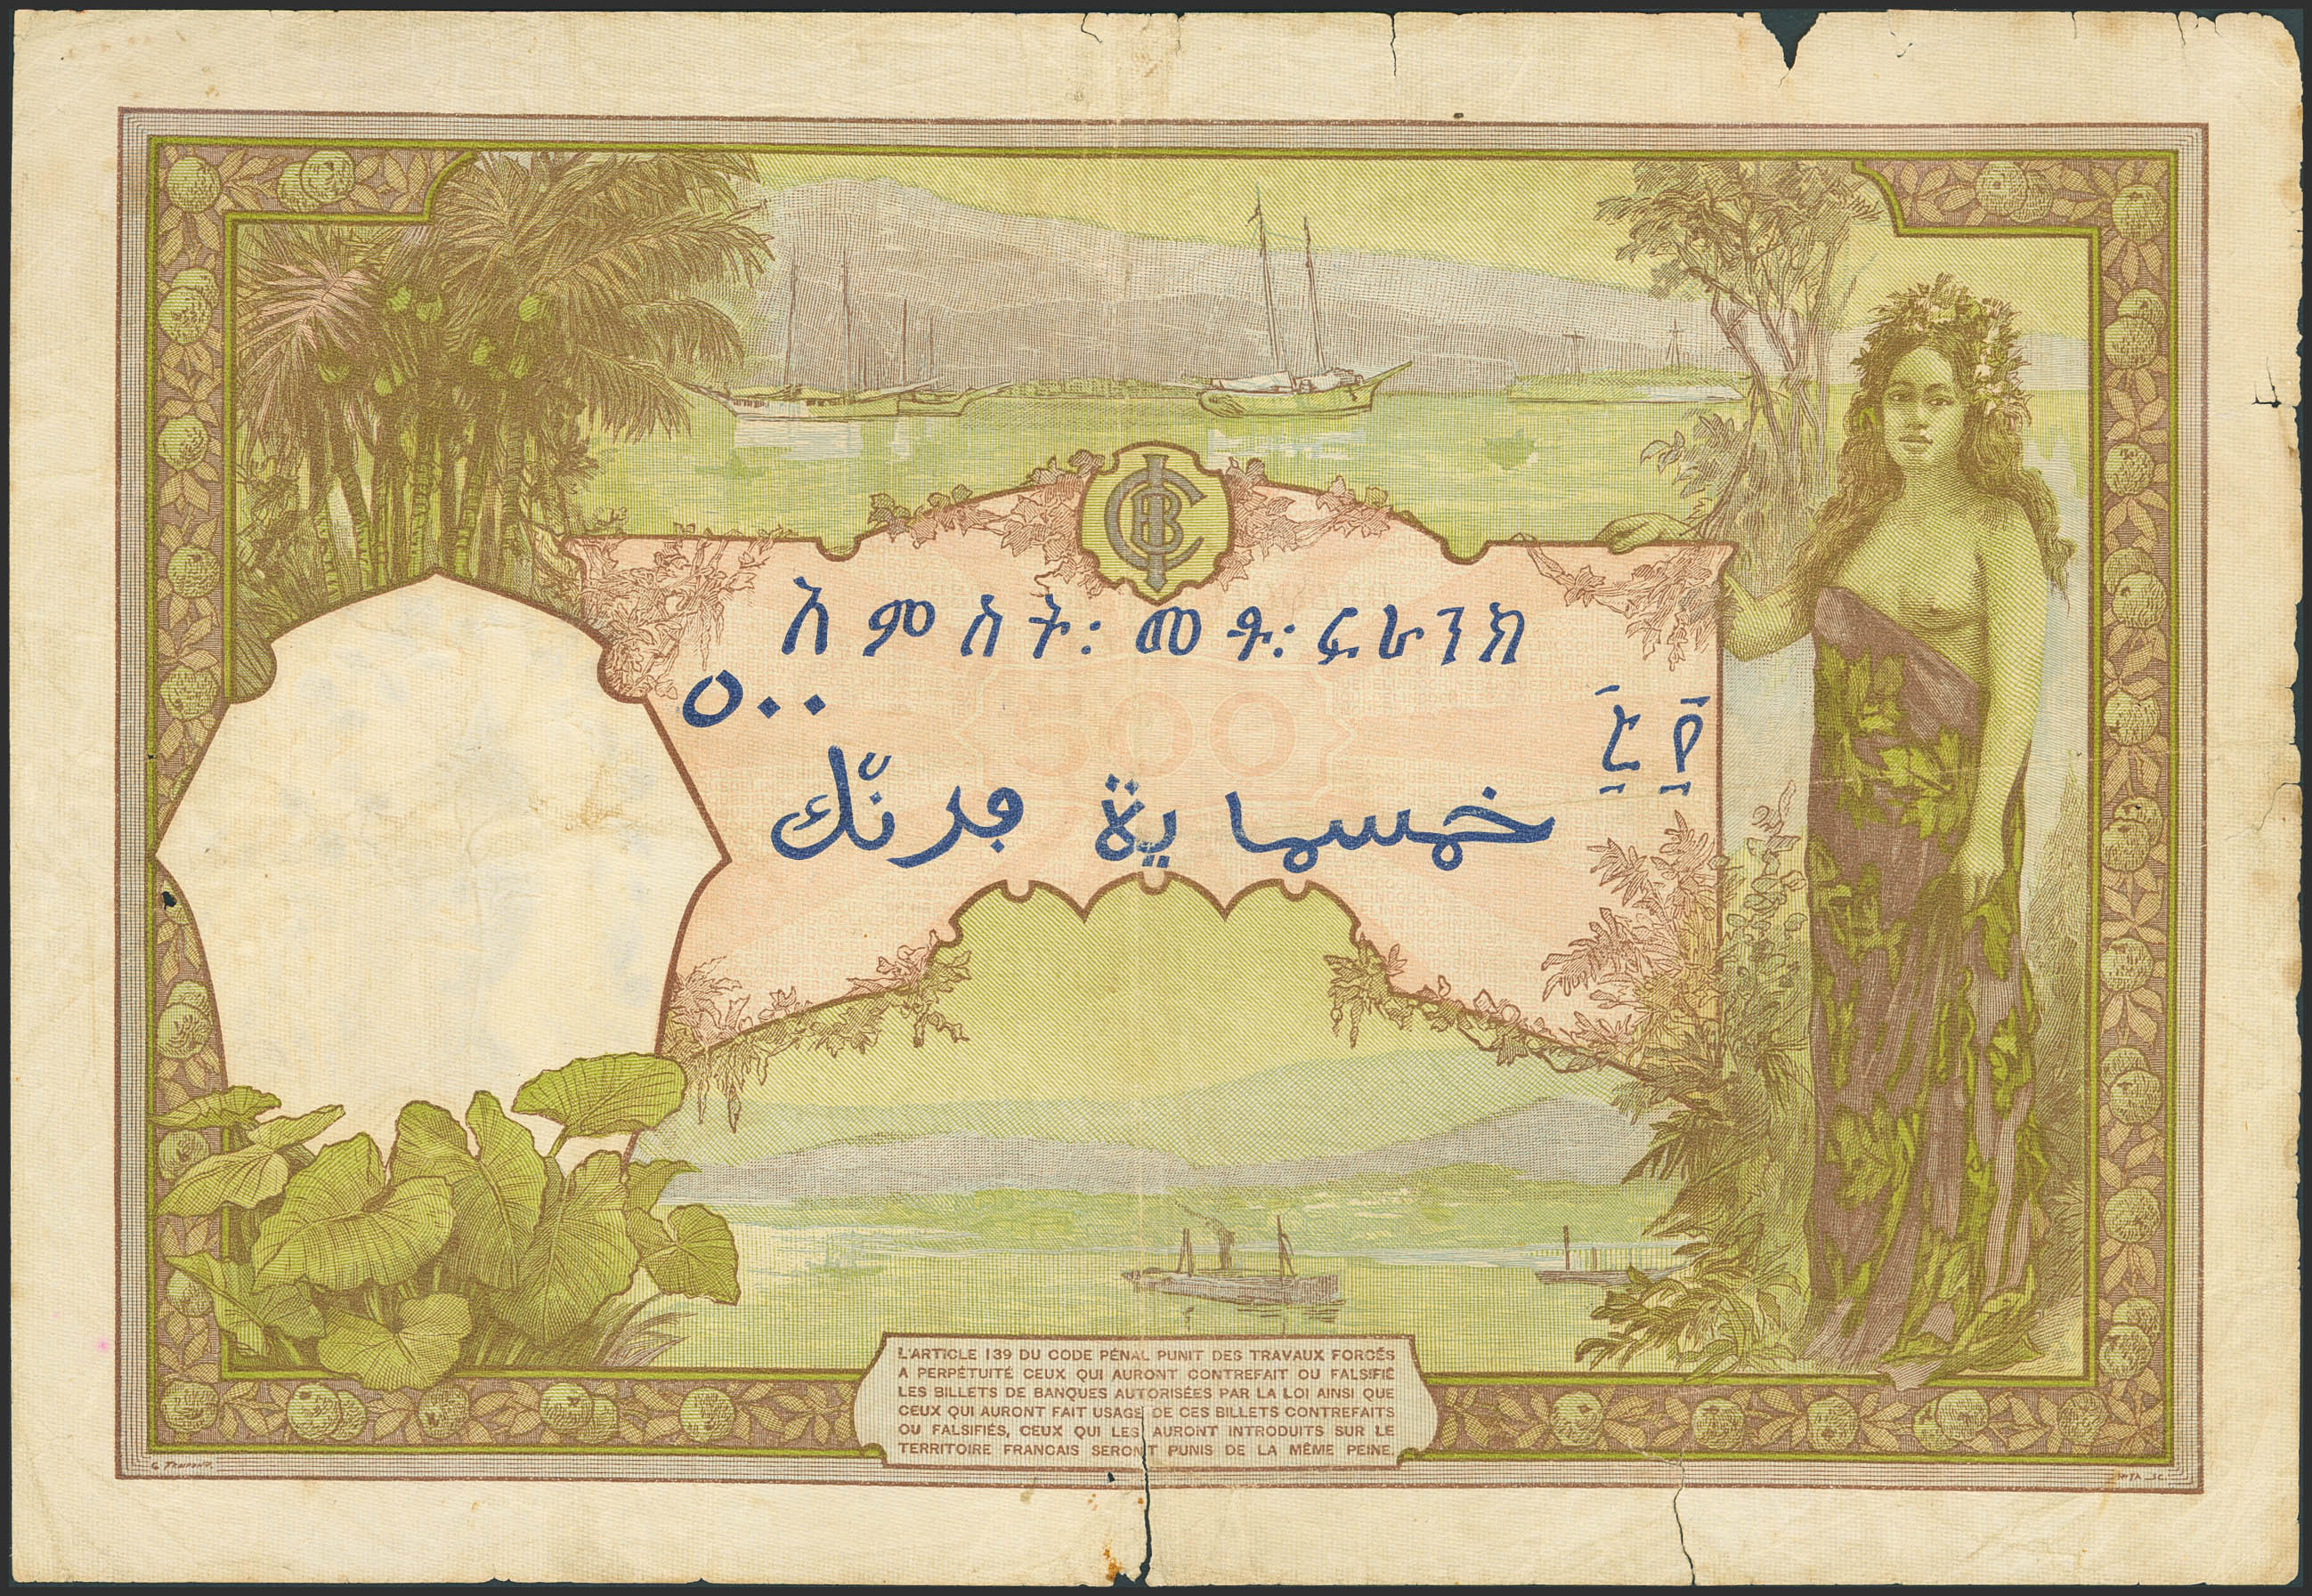 አምስት፡ መቶ፡ ፍራንክ
٥٠٠
፭ ፻
خمسماية فرنّك
500
L'ARTICLE 139 DU CODE PÉNAL PUNIT DES TRAVAUX FORCÉS
A PERPÉTUITÉ CEUX QUI AURONT CONTREFAIT OU FALSIFIÉ
LES BILLETS DE BANQUES AUTORISÉES PAR LA LOI AINSI QUE
CEUX QUI AURONT FAIT USAGE DE CES BILLETS CONTREFAITS
OU FALSIFIÉS, CEUX QUI LES AURONT INTRODUITS SUR LE
TERRITOIRE FRANCAIS SERONT PUNIS DE LA MÊME PEINE.